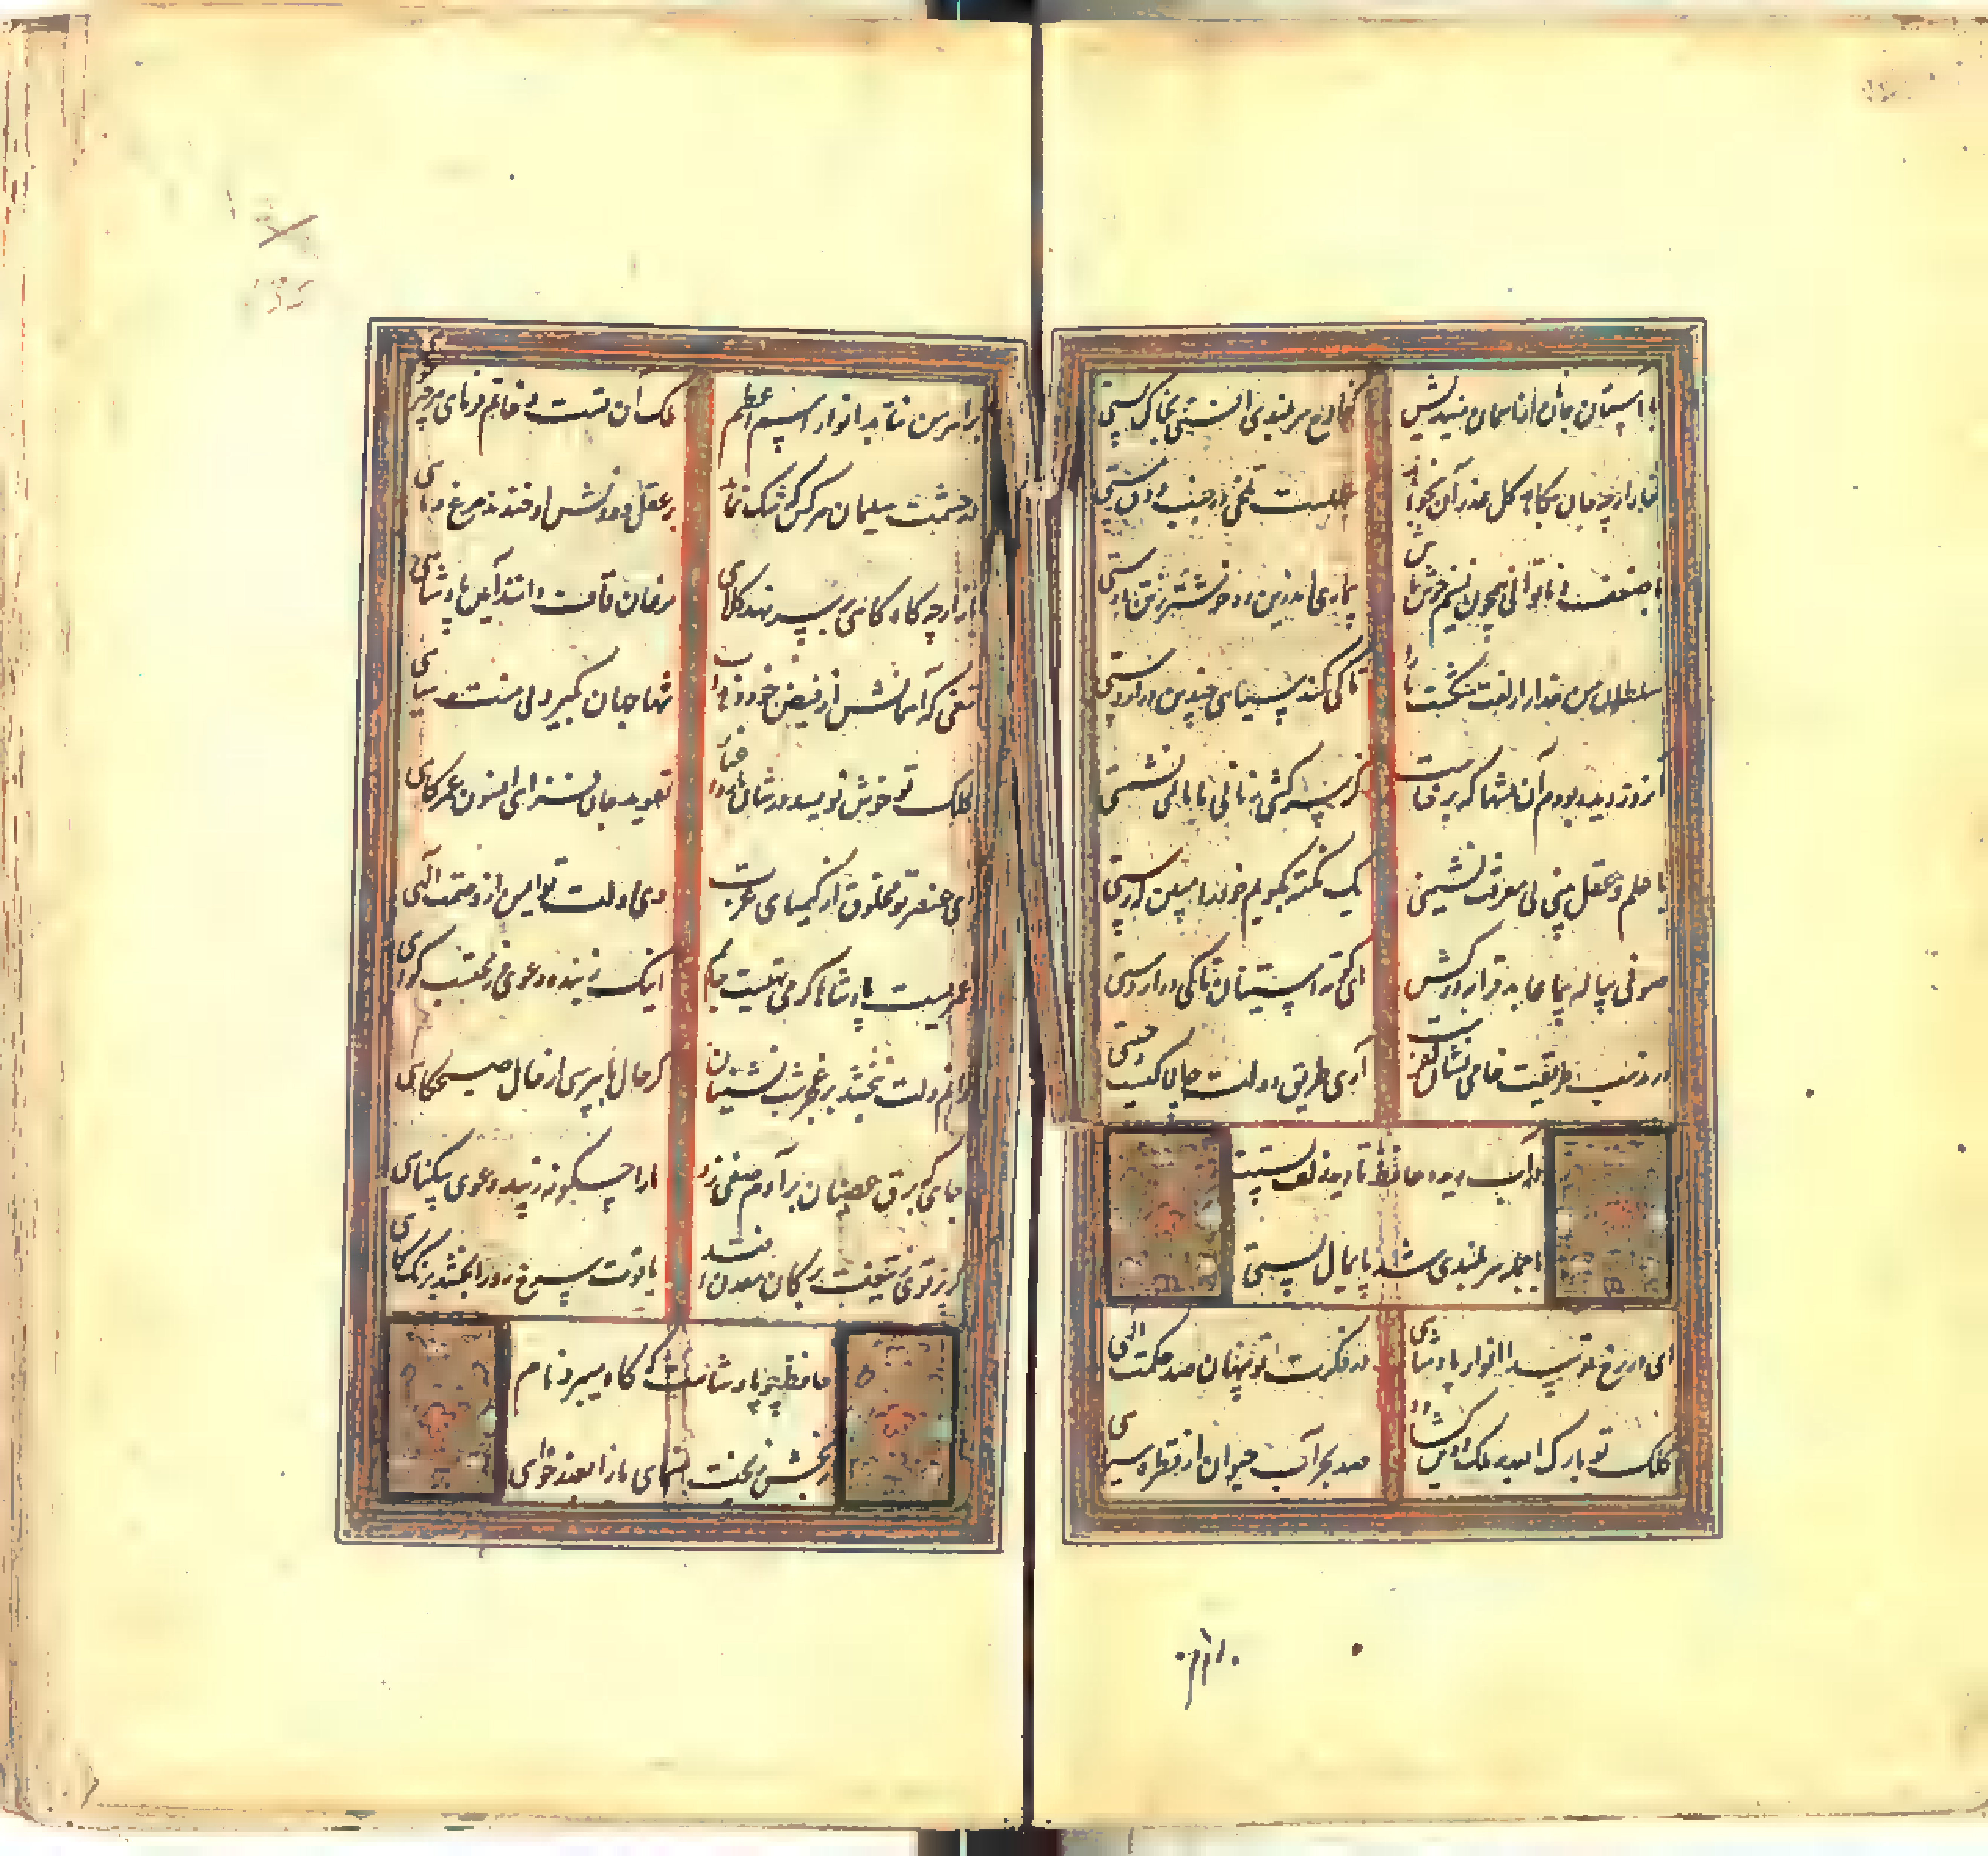 با آستان جانان از آسمان میندیش کز اوج سربلندی افتی بخاک پستی
خار ارچه جان بکاهد گل عذر آن بخواهد سهلست تلخی می در جنب ذوق مستی
با ضعف و ناتوانی همچون نسیم خوش باش بیماری اندرین ره خوشتر ز تن درستی
سلطان من خدا را زلفت شکست ما را تا کی کند سیاهی چندین دراز دستی
آنروز دیده بودم آن فتنها که برخاست کز سرکشی زمانی با ما نمی نشستی
با علم و عقل بینی بی معرفت نشینی یک نکته بگویم خود را مبین که رستی
صوفی پیاله پیما حافظ قرابه پرهیز ای کوته آستینان تا کی دراز دستی
در مذهب طریقت خامی نشان کفرست آری طریق دولت چالاکیست و چستی
از آب دیده حافظ تا دید زلف پستت
با جمله سربلندی شد پایمال پستی
ای در رخ تو پیدا انوار پادشاهی در فکرت تو پنهان صد حکمت الهی
کلک تو بارک الله بر ملک و دین گشاده صد بحر آب حیوان از قطره سیاهی
بر اهرمن نتابد انوار اسم اعظم ملک آن تست و خاتم فرمای هر چه خواهی
در حشمت سلیمان هر کس که شک نماید بر عقل و دانش او خندند مرغ و ماهی
باز ارچه گاه گاهی بر سر نهد کلاهی مرغان قاف دانند آیین پادشاهی
تیغی که آسمانش از فیض خود دهد آب تنها جهان گیرد بی منت سپاهی
کلک تو خوش نویسد در شان یار و اغیار تعویذ جان فزایی افسون عمر کاهی
ای عنصر تو مخلوق از کیمیای عزت وی دولت تو ایمن از وصمت تباهی
عمریست پادشاها کز می تهیست جامم اینک ز بنده دعوی وز محتسب گواهی
دانم دلت ببخشد بر عجز شب نشینان گر حال ما بپرسی از باد صبحگاهی
جایی که برق عصیان بر آدم صفی زد ما را چگونه زیبد دعوی بیگناهی
گر پرتوی ز تیغت بر کان و معدن افتد یاقوت سرخ رو را بخشند رنگ کاهی
حافظ چو پادشاهت گه گاه میبرد نام
رنجش ز بخت منمای بازآ بعذر خواهی